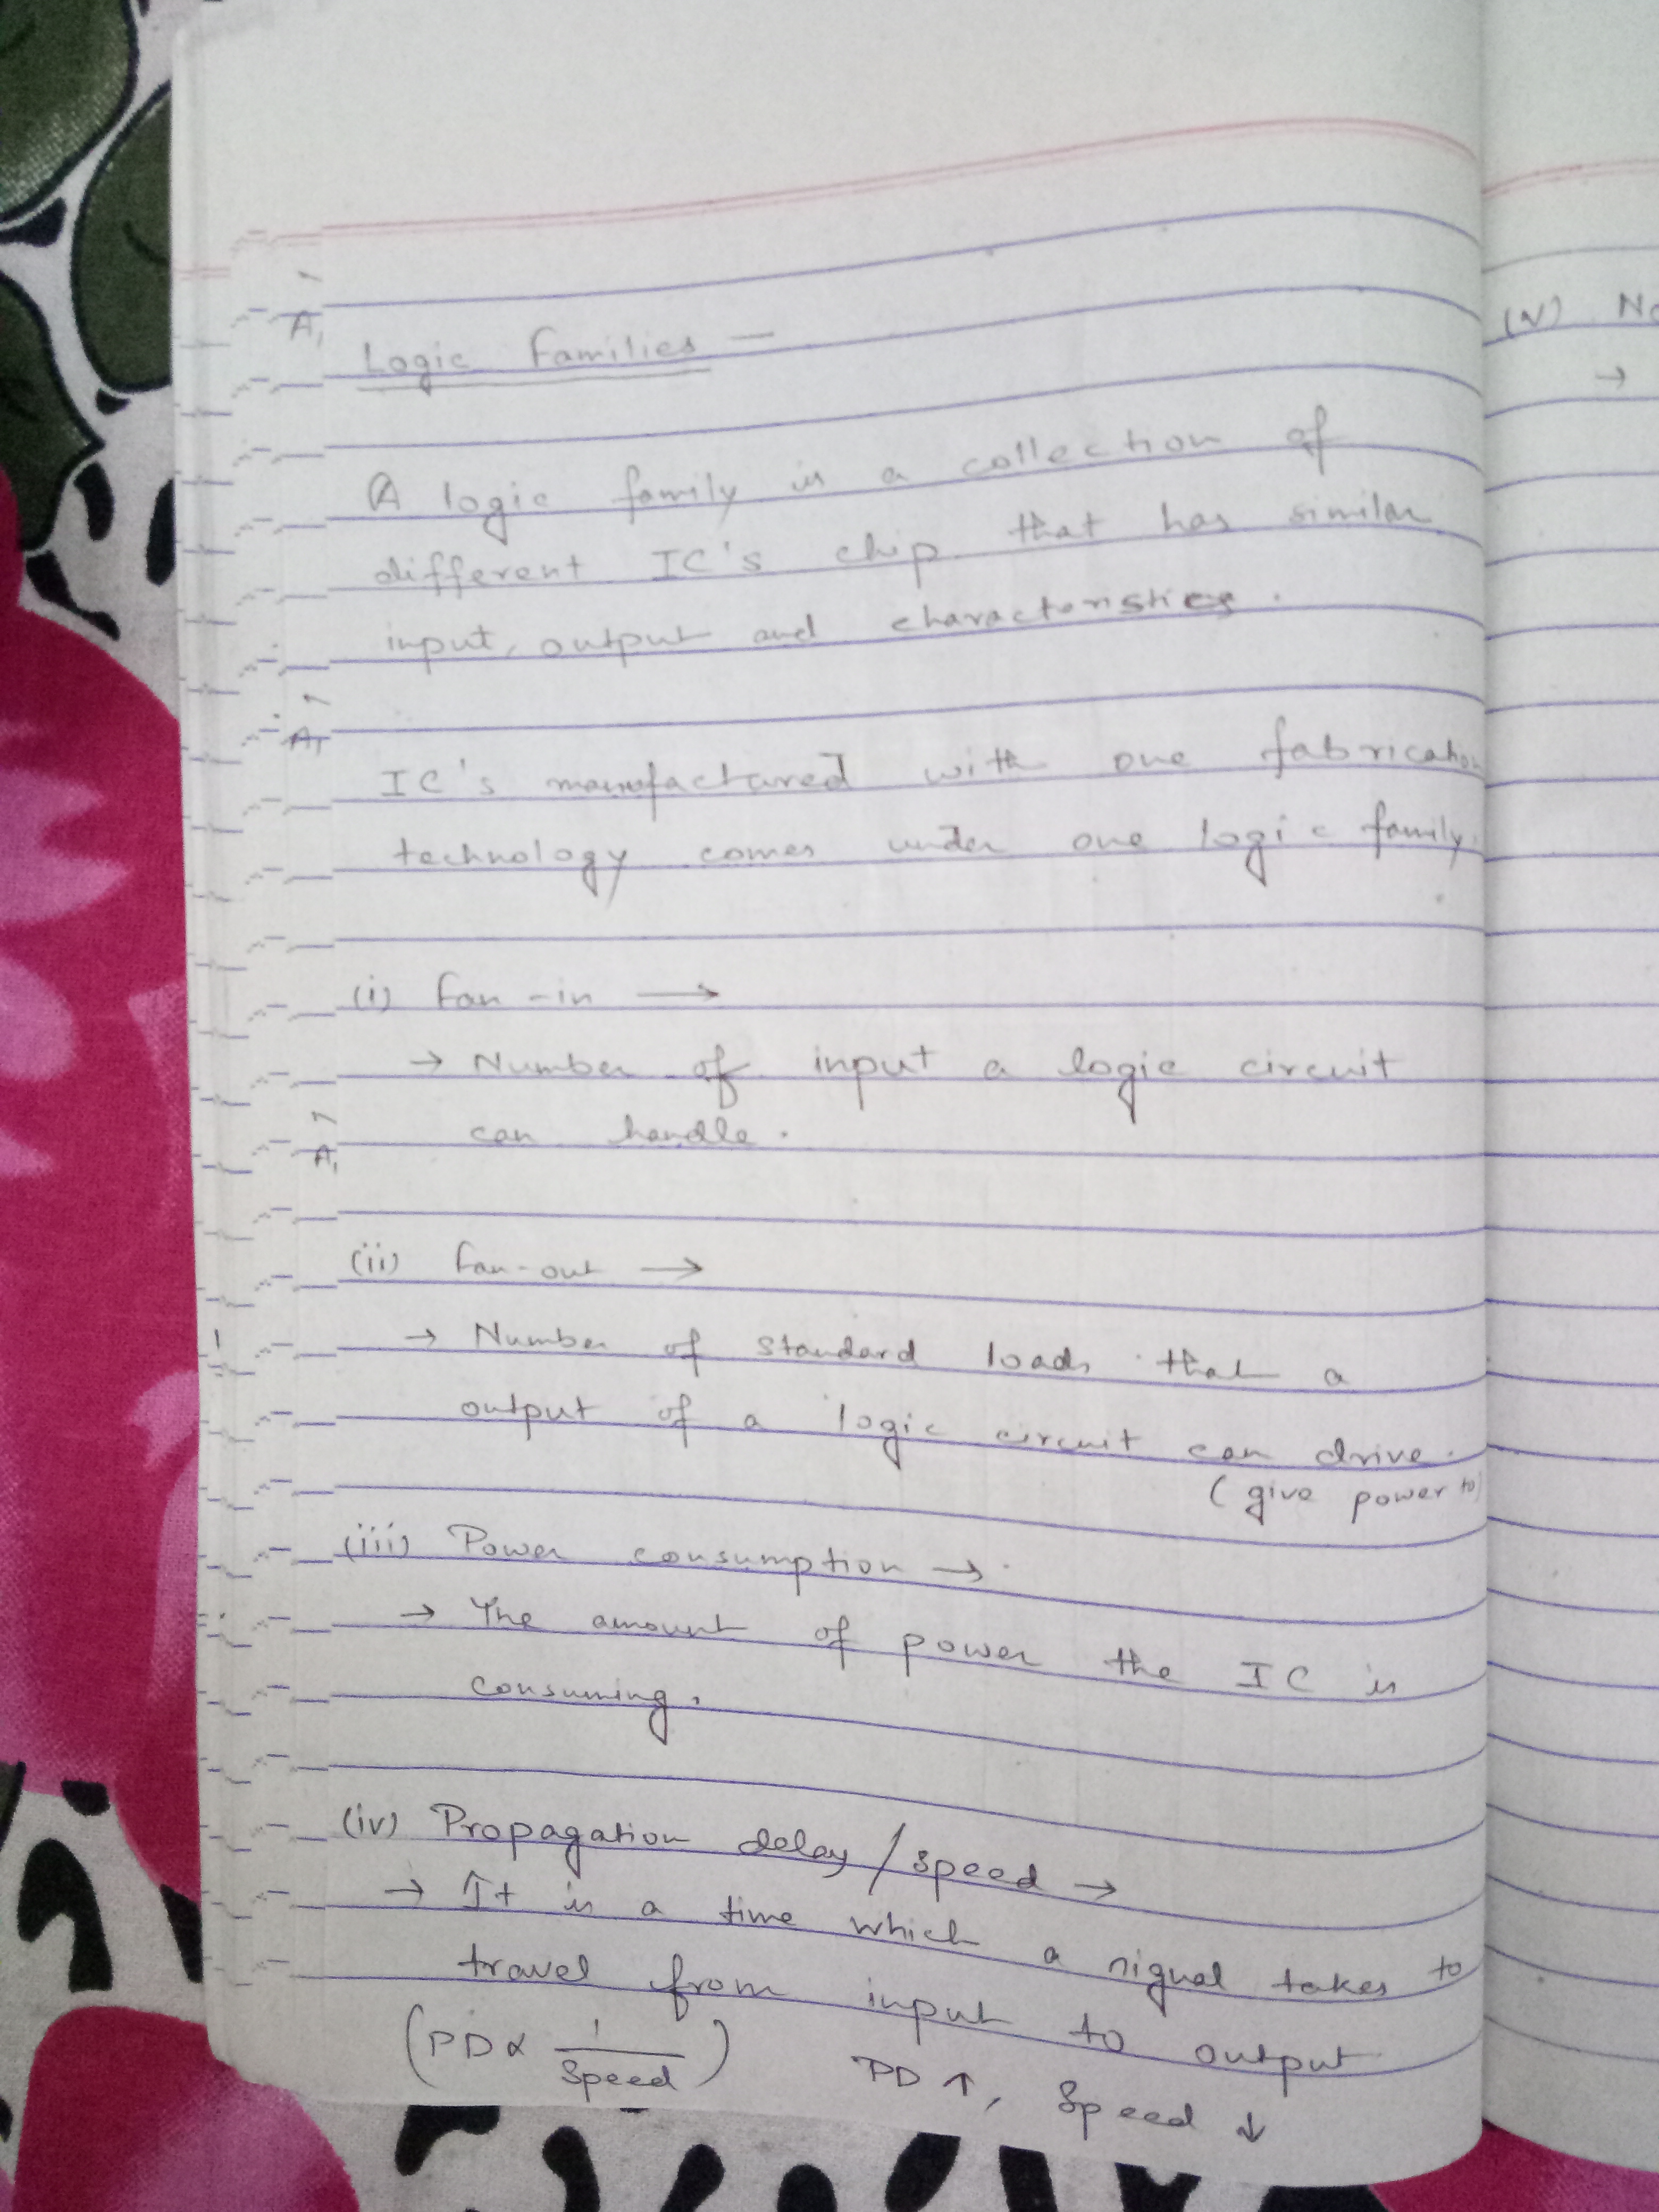 Logic Families —
A logic family is a collection of
different IC's chip that has similar
input, output and characteristics.
IC's manufactured with one fabrication
technology comes under one logic family.
(i) Fan-in →
→ Number of input a logic circuit
can handle.
(ii) Fan-out →
→ Number of standard loads that a
output of a logic circuit can drive.
(give power to)
(iii) Power consumption →
→ The amount of power the IC is
consuming.
(iv) Propagation delay / speed →
→ It is a time which a signal takes to
travel from input to output
(PD ∝ 1/Speed) PD ↑, Speed ↓
(v) No
→